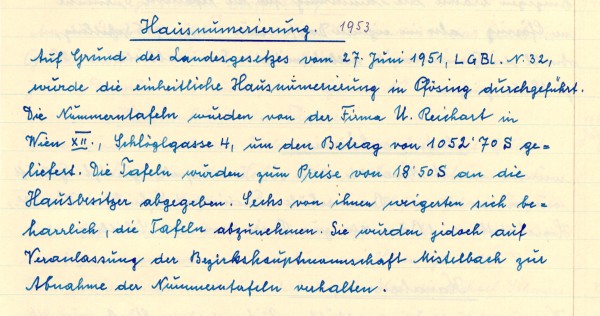 Hausnumerierung. 1953
Auf Grund des Landesgesetzes vom 27. Juni 1951, LGBL. N. 32,
wurde die einheitliche Hausnumerierung in Pfösing durchgeführt.
Die Nummerntafeln wurden von der Firma U. Reichart in
Wien XII., Schlöglgasse 4, um den Betrag von 1052'70 S ge=
liefert. Die Tafeln wurden zum Preise von 18'50 S an die
Hausbesitzer abgegeben. Sechs von ihnen weigerten sich be=
harrlich, die Tafeln abzunehmen. Sie wurden jedoch auf
Veranlassung der Bezirkshauptmannschaft Mistelbach zur
Abnahme der Nummerntafeln verhalten.